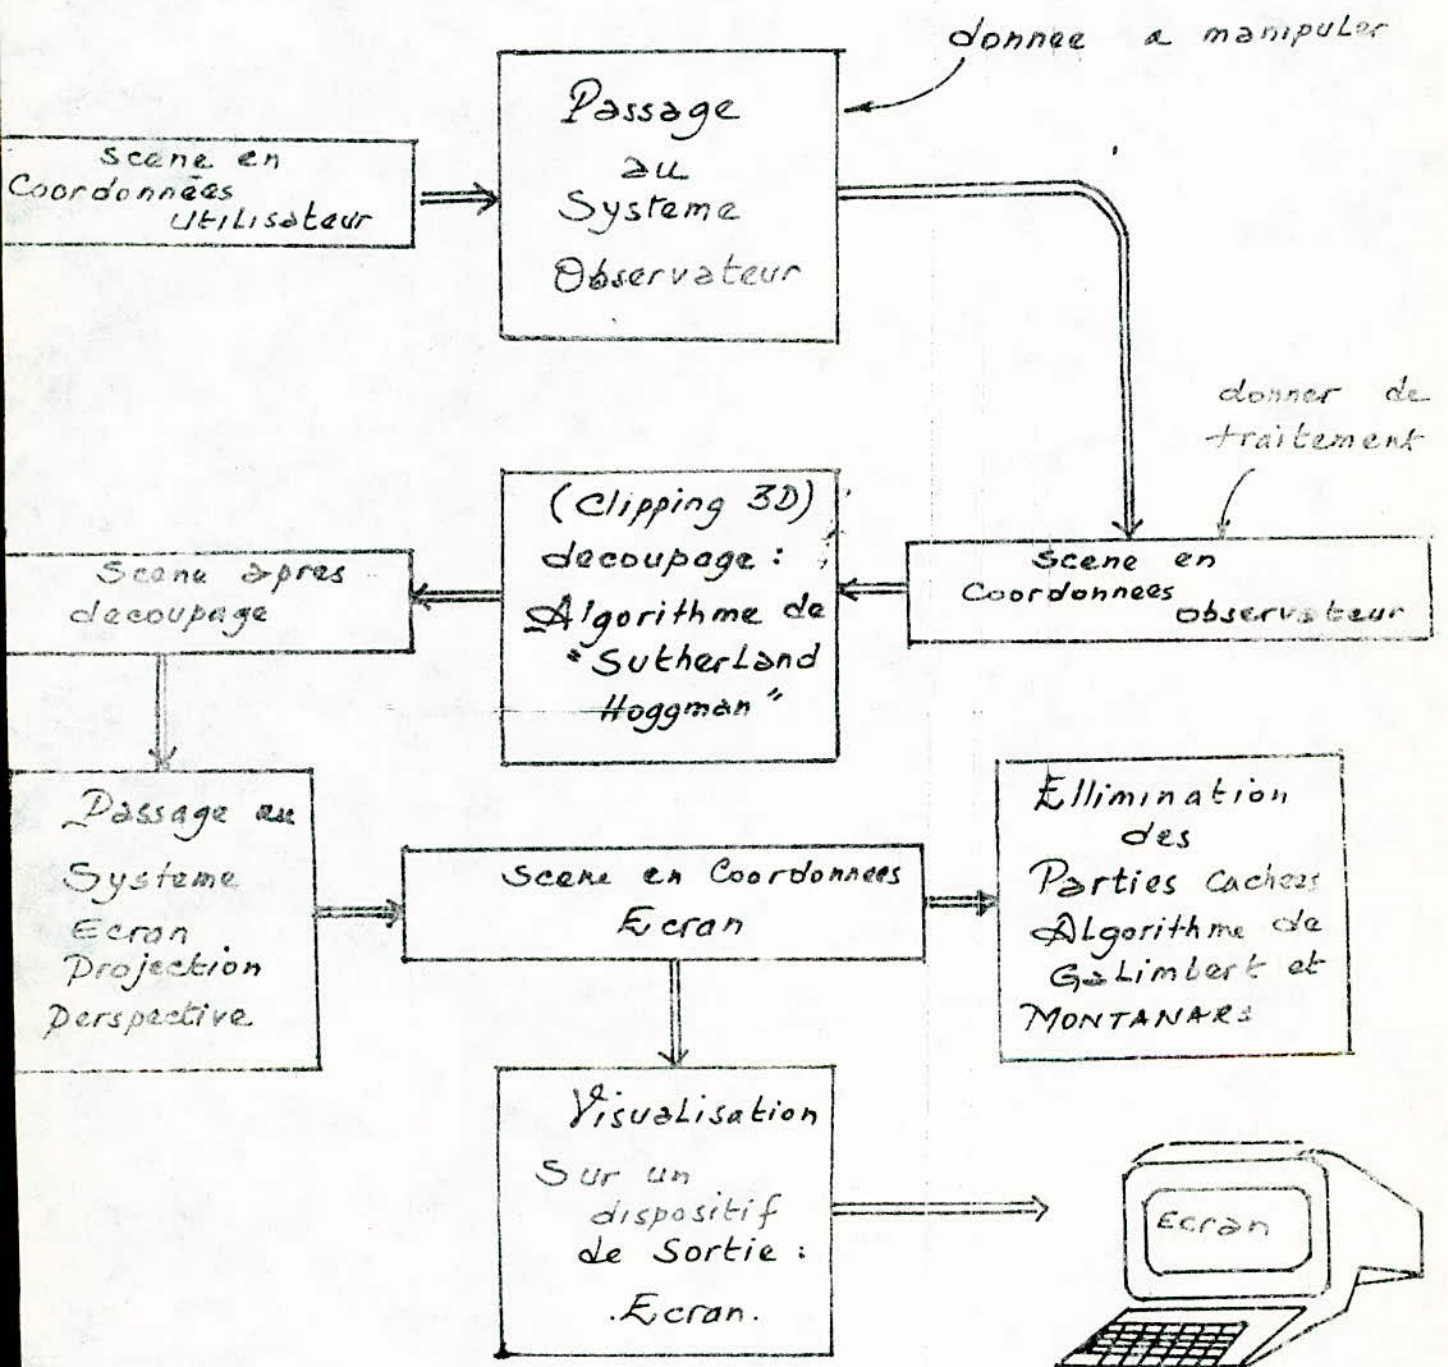 donnee a manipuler
Scene en
Coordonnées
Utilisateur
Passage
au
Systeme
Observateur
donner de
traitement
Scene en
Coordonnees
Observateur
(Clipping 3D)
decoupage :
Algorithme de
"Sutherland
Hoggman"
Scene apres
decoupage
Passage au
Systeme
Ecran
Projection
perspective
Scene en Coordonnees
Ecran
Ellimination
des
Parties Cachees
Algorithme de
Galimbert et
MONTANARS
Visualisation
Sur un
dispositif
de Sortie :
.Ecran.
Ecran